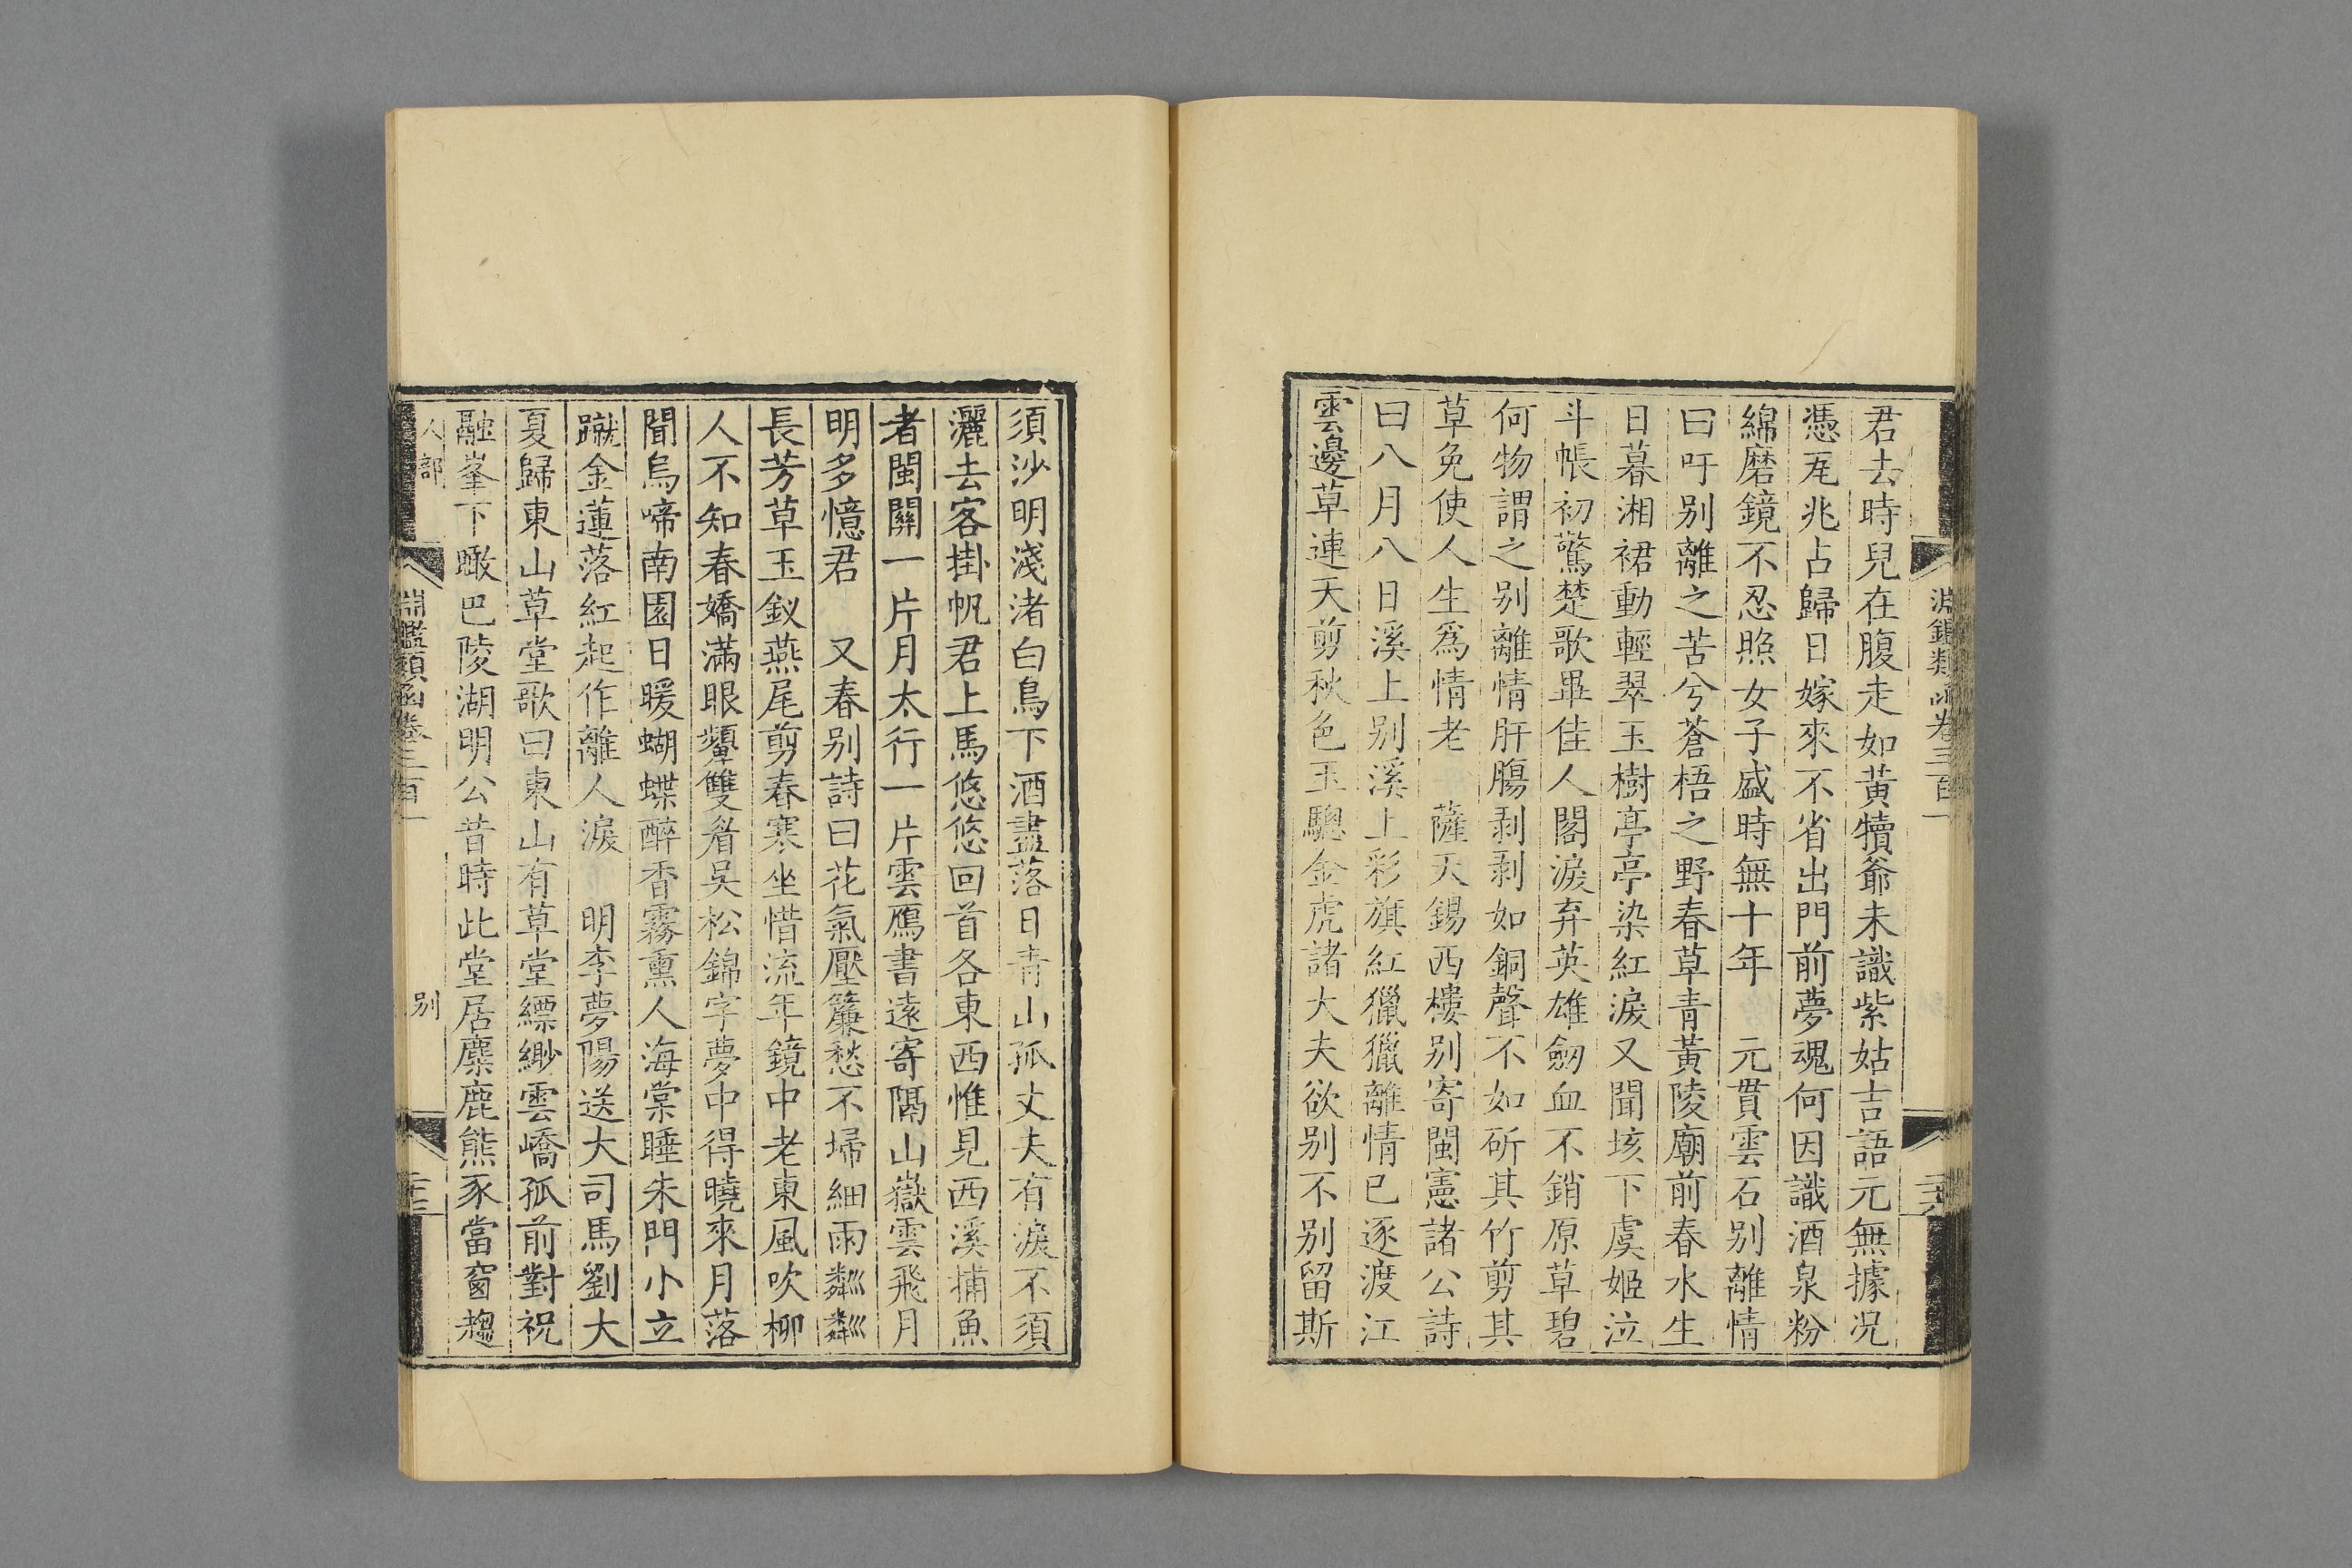 君去時兒在腹走如黃犢爺未識紫姑吉語元無據况
憑瓦兆占歸日嫁來不省出門前夢魂何因識酒泉粉
綿磨鏡不忍照女子盛時無十年　元貫雲石别離情
曰吁别離之苦兮蒼梧之野春草青黃陵廟前春水生
日暮湘裙動輕翠玉樹亭亭染紅淚又聞垓下虞姬泣
斗帳初驚楚歌畢佳人閣淚弃英雄劒血不銷原草碧
何物謂之别離情肝腸剥剥如銅聲不如斫其竹剪其
草免使人生爲情老　薩天錫西樓别寄閩憲諸公詩
曰八月八日溪上别溪上彩旗紅獵獵離情已逐渡江
雲邊草連天剪秋色玉驄金虎諸大夫欲别不别留斯
淵鑑類函卷三百一
須沙明淺渚白鳥下酒盡落日青山孤丈夫有淚不須
灑去客掛帆君上馬悠悠回首各東西惟見西溪捕魚
者閩關一片月太行一片雲鴈書遠寄隔山嶽雲飛月
明多憶君　又春别詩曰花氣壓簾愁不埽細雨粼粼
長芳草玉釵燕尾剪春寒坐惜流年鏡中老東風吹柳
人不知春嬌滿眼顰雙眉吳松錦字夢中得曉來月落
聞烏啼南園日暖蝴蝶醉香霧熏人海棠睡朱門小立
蹴金蓮落紅起作離人淚　明李夢陽送大司馬劉大
夏歸東山草堂歌曰東山有草堂縹緲雲嶠孤前對祝
融峯下瞰巴陵湖明公昔時此堂居麋鹿熊豕當窗趨
人部　淵鑑類函卷三百一　别